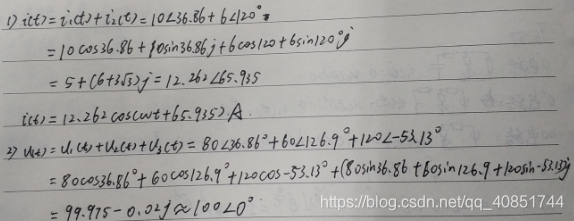 1) i(t)=i₁(t)+i₂(t)=10∠36.86+6∠120°
=10cos36.86+10sin36.86j+6cos120+6sin120°j
=5+(6+3√3)j=12.262∠65.935
i(t)=12.262cos(wt+65.935)A.
2) u(t)=u₁(t)+u₂(t)+u₃(t)=80∠36.86°+60∠126.9°+120∠-53.13°
=80cos36.86°+60cos126.9°+120cos-53.13°+(80sin36.86+60sin126.9+120sin-53.13)j
=99.975-0.02j≈100∠0°
https://blog.csdn.net/qq_40851744